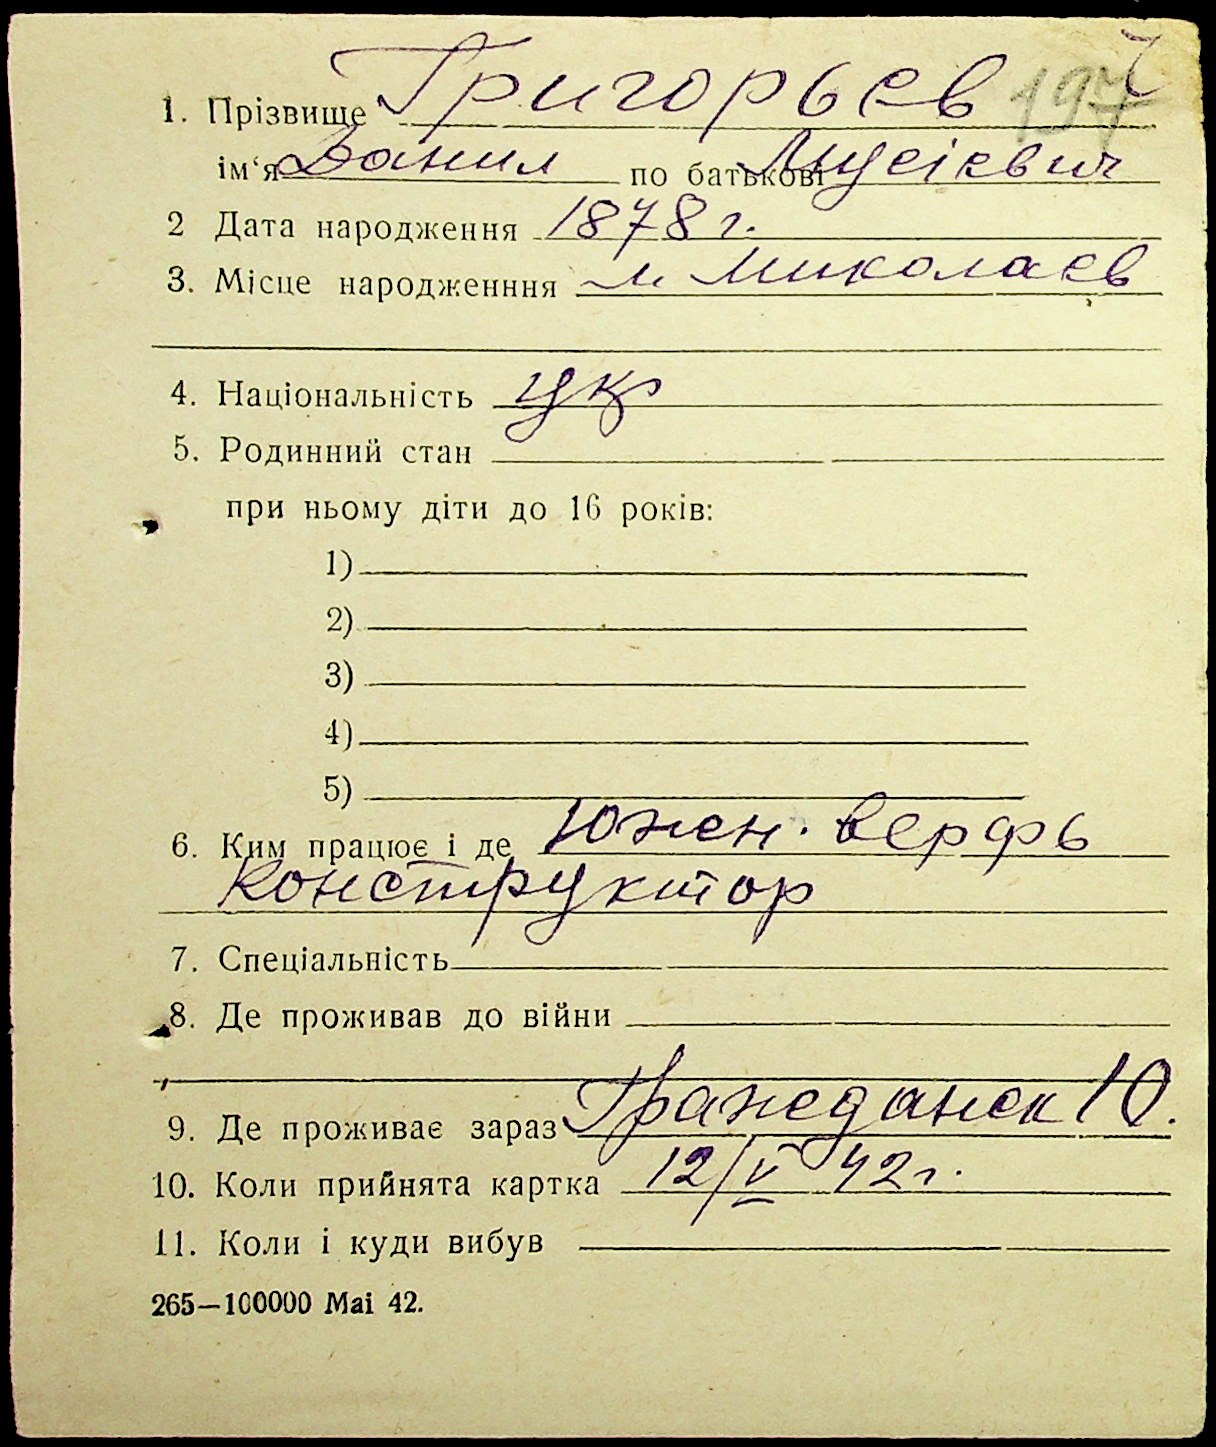 1. Прізвище Григорьев 197
ім‘я Данил по батькові
2 Дата народження 1878 г.
3. Місце народженння м. Миколаєв
4. Національність укр
5. Родинний стан
при ньому діти до 16 років:
1)
2)
3)
4)
5)
6. Ким працює і де Южн. верфь
конструктор
7. Спеціальність
8. Де проживав до війни
9. Де проживає зараз Гражданск 10.
10. Коли прийнята картка 12/V 42 г.
11. Коли і куди вибув
265—100000 Mai 42.